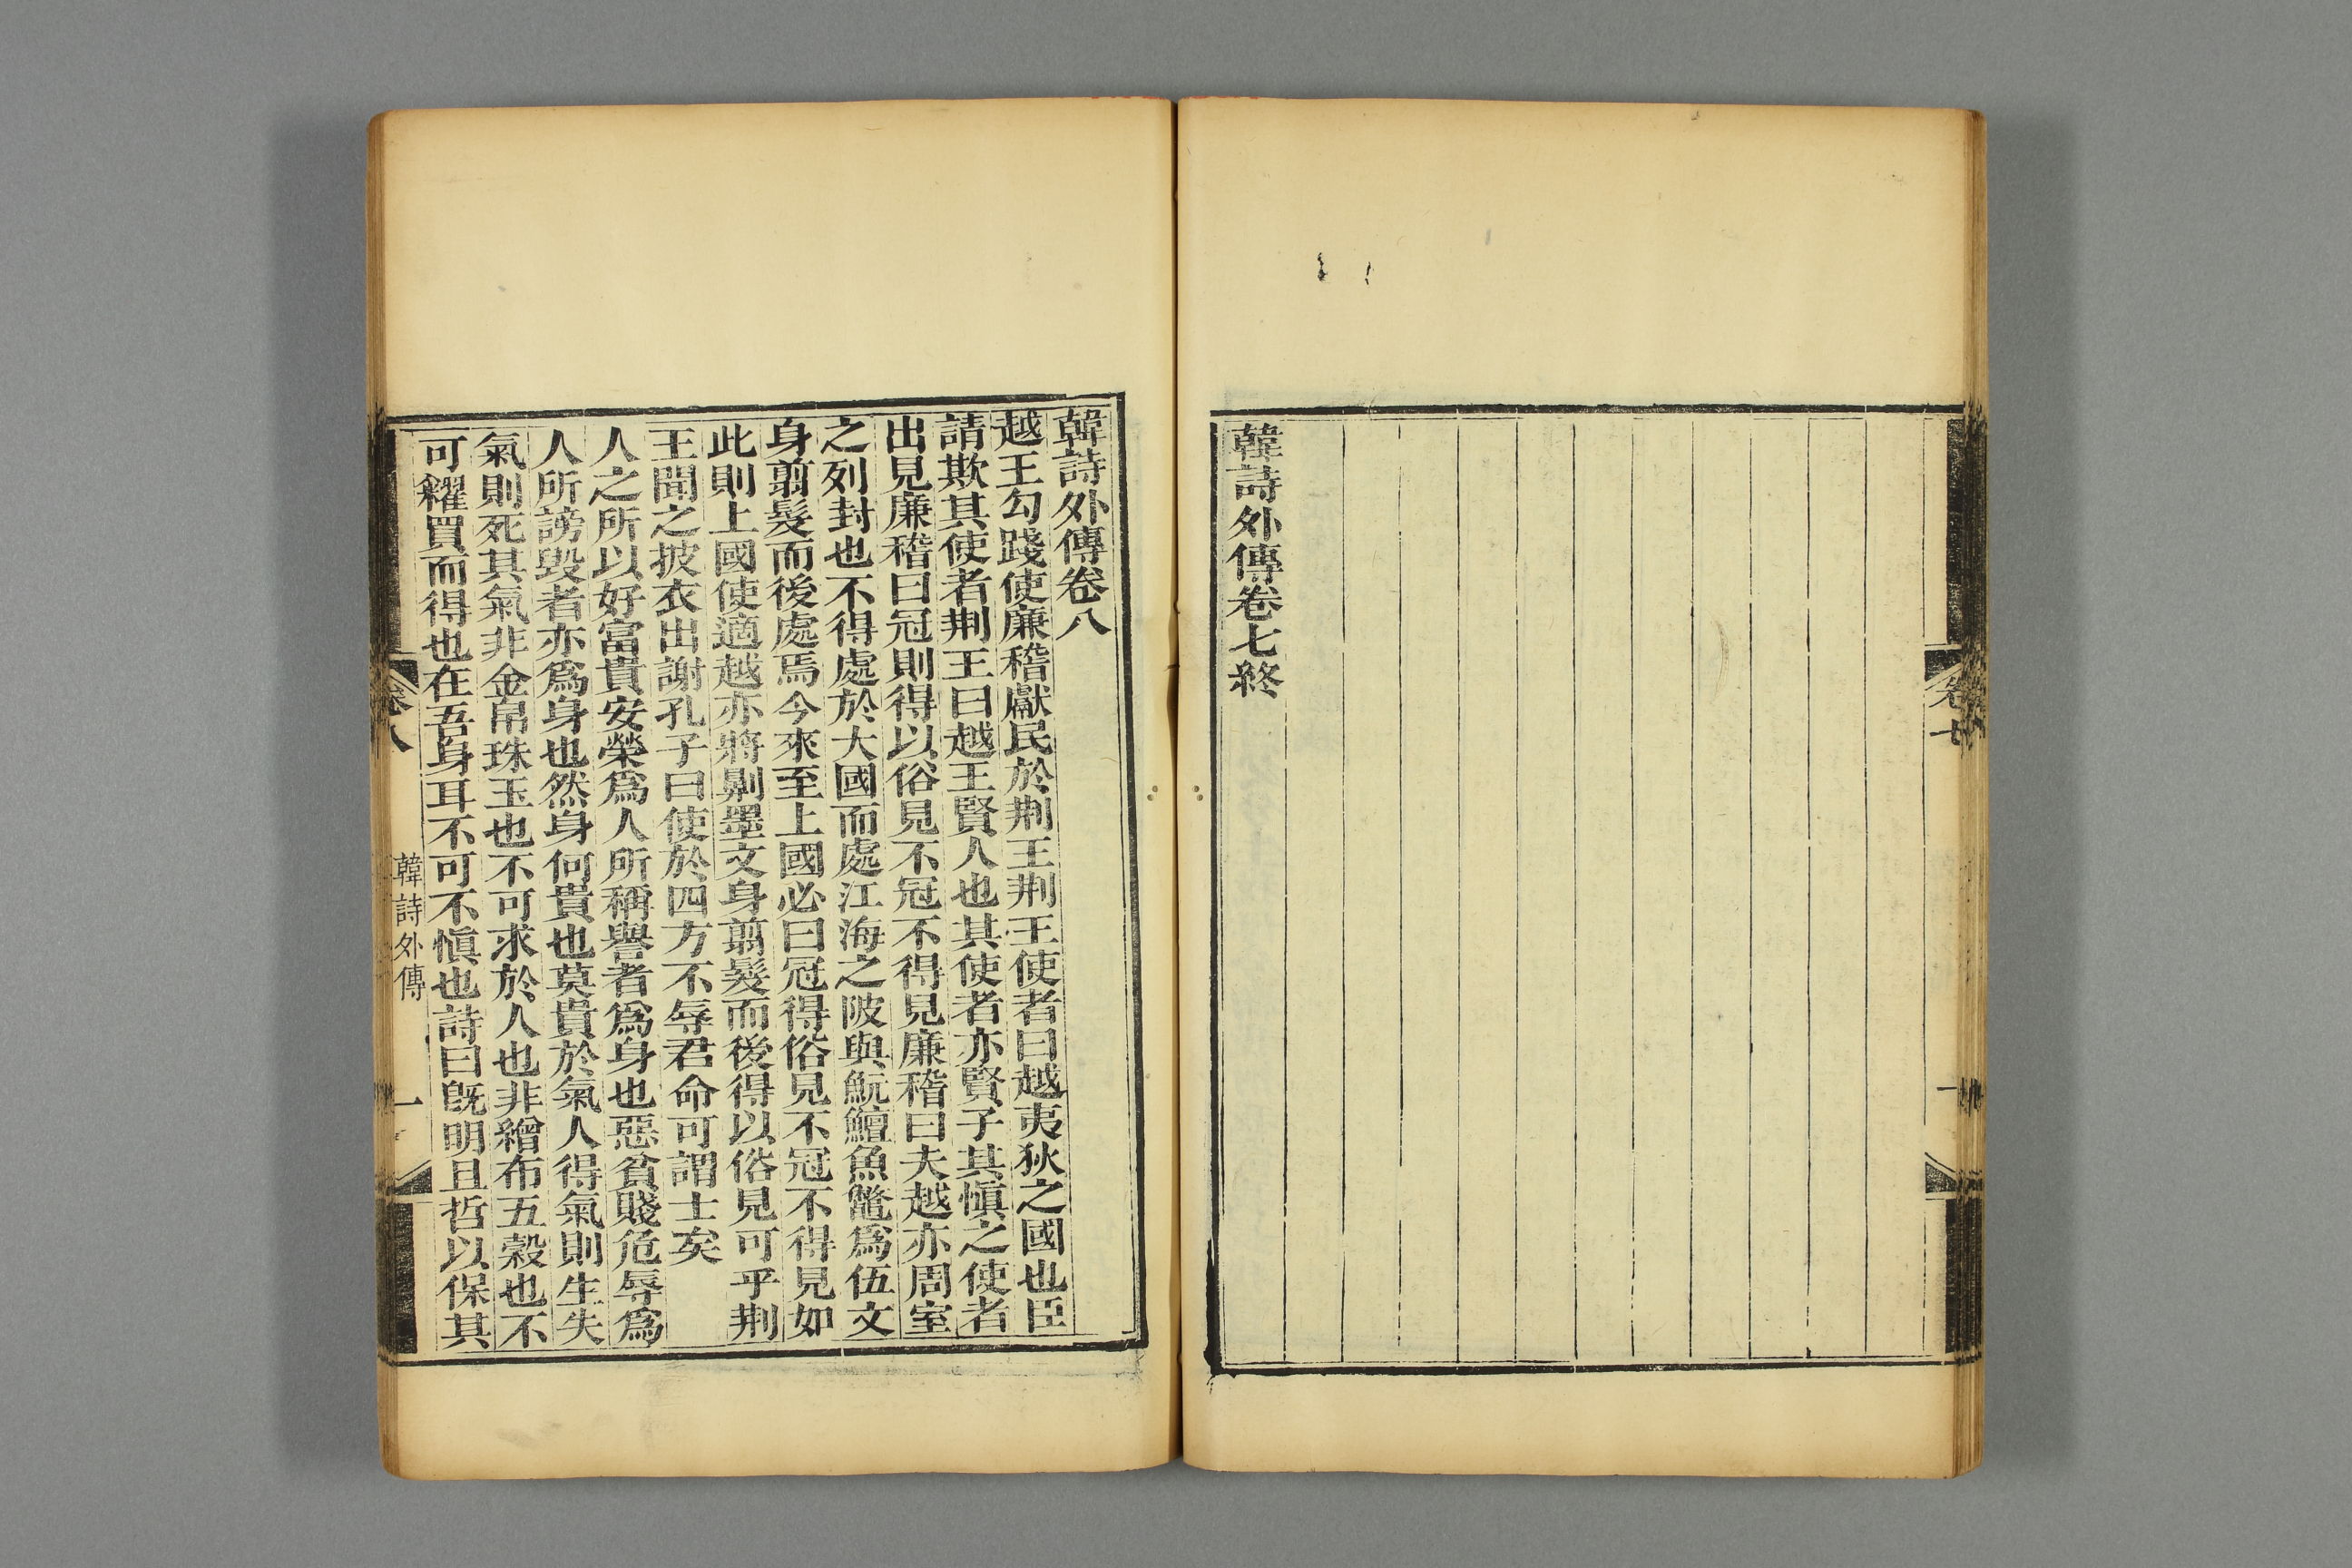 韓詩外傳卷七終
卷七
韓詩外傳卷八
越王勾踐使廉稽獻民於荆王荆王使者曰越夷狄之國也臣
請欺其使者荆王曰越王賢人也其使者亦賢子其愼之使者
出見廉稽曰冠則得以俗見不冠不得見廉稽曰夫越亦周室
之列封也不得處於大國而處江海之陂與魭鱣魚鼈爲伍文
身翦髮而後處焉今來至上國必曰冠得俗見不冠不得見如
此則上國使適越亦將劓墨文身翦髮而後得以俗見可乎荆
王聞之披衣出謝孔子曰使於四方不辱君命可謂士矣
人之所以好富貴安榮爲人所稱譽者爲身也惡貧賤危辱爲
人所謗毀者亦爲身也然身何貴也莫貴於氣人得氣則生失
氣則死其氣非金帛珠玉也不可求於人也非繒布五榖也不
可糴買而得也在吾身耳不可不愼也詩曰旣明且哲以保其
卷八
韓詩外傳
一